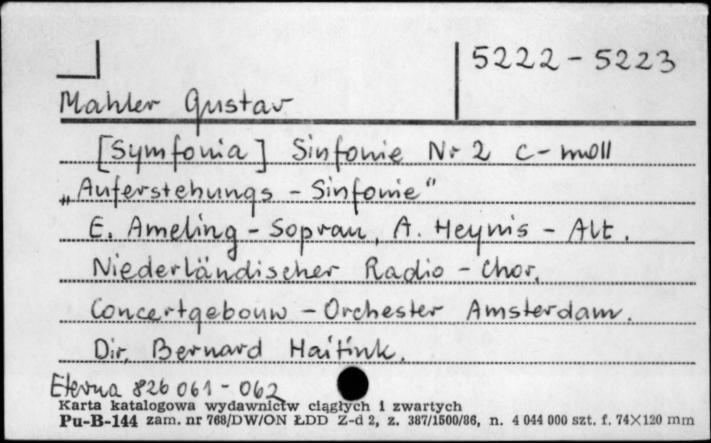 5222 - 5223
Mahler Gustav
[Symfonia] Sinfonie Nr 2 c-moll
„Auferstehungs - Sinfonie"
E. Ameling - Sopran, A. Heynis - Alt.
Niederländischer Radio - Chor,
Concertgebouw - Orchester Amsterdam.
Dir. Bernard Haitink.
Eterna 826 061 - 062
Karta katalogowa wydawnictw ciągłych i zwartych
Pu-B-144 zam. nr 768/DW/ON ŁDD Z-d 2, z. 387/1500/86, n. 4 044 000 szt. f. 74×120 mm